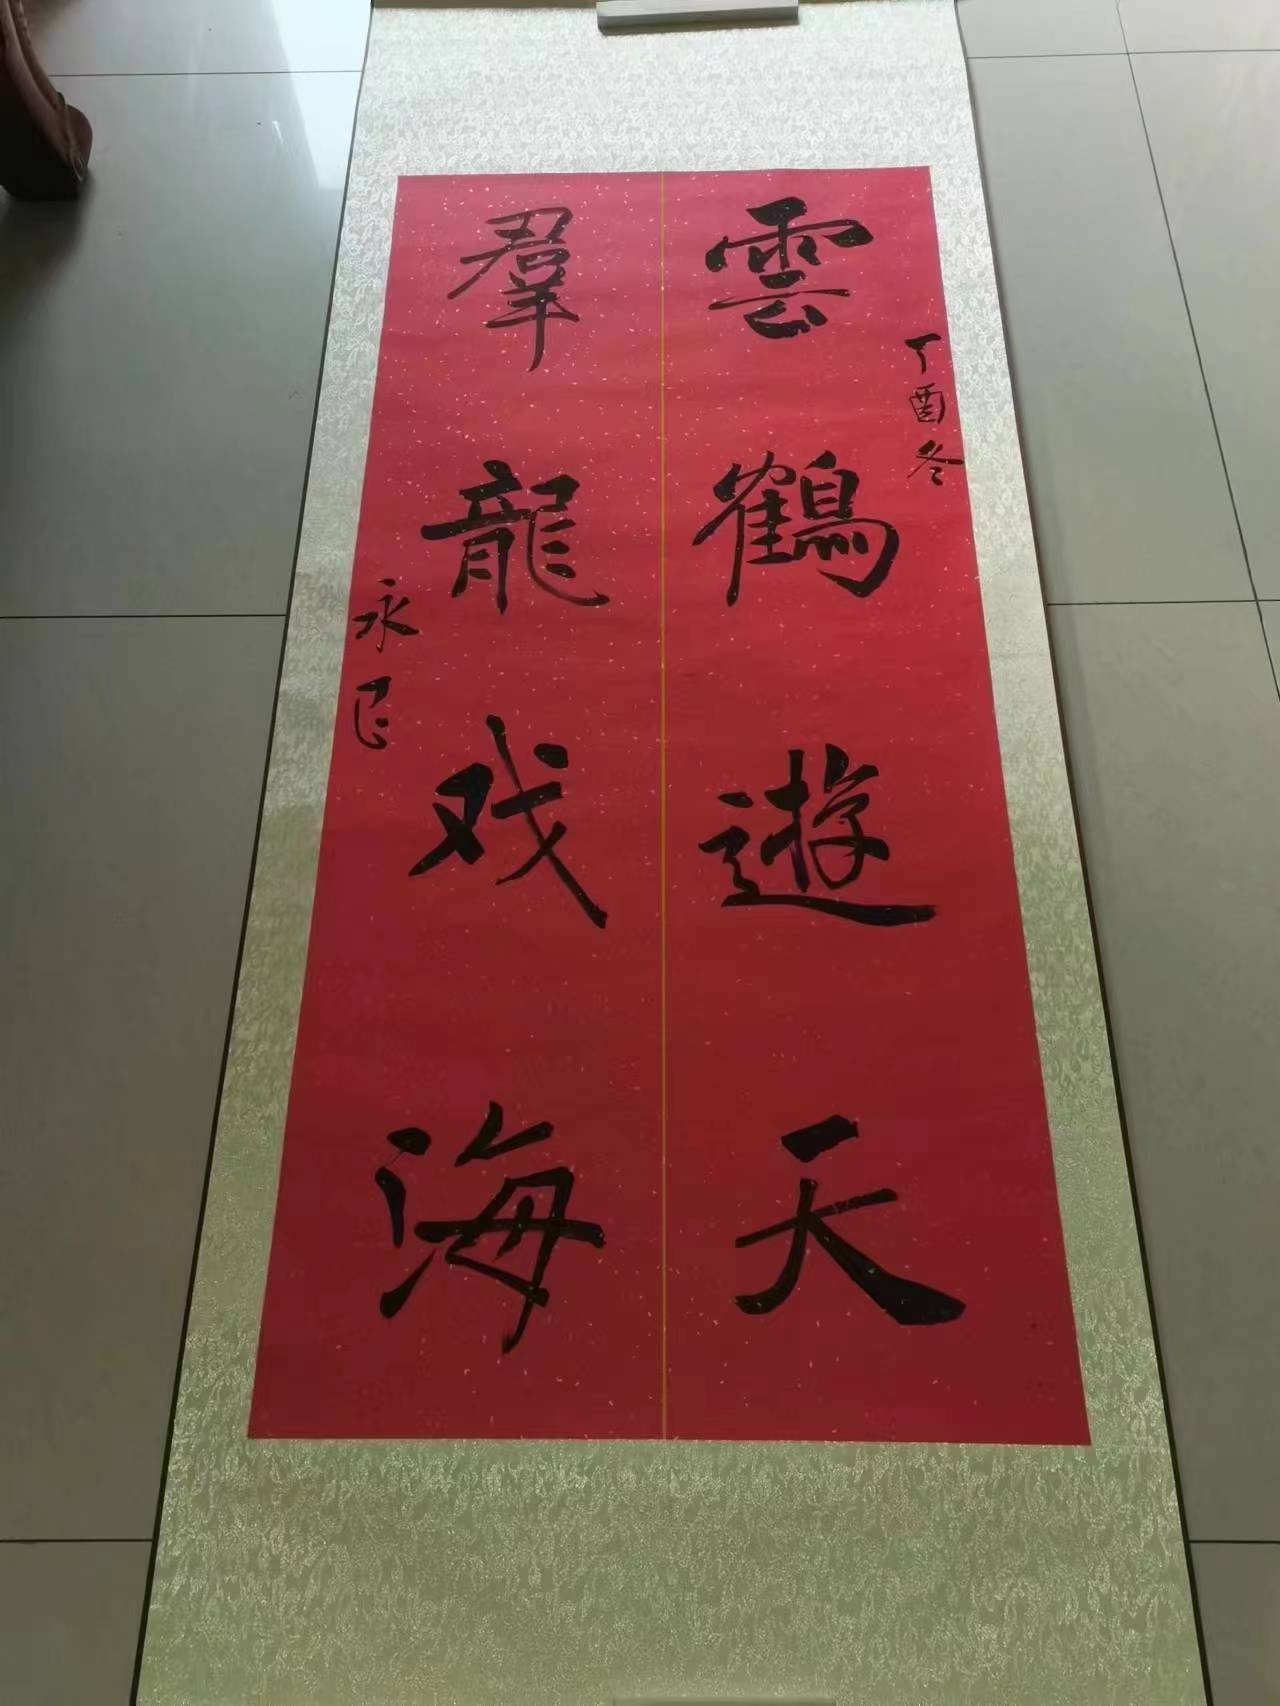 丁酉冬
雲鶴遊天
羣龍戏海
永